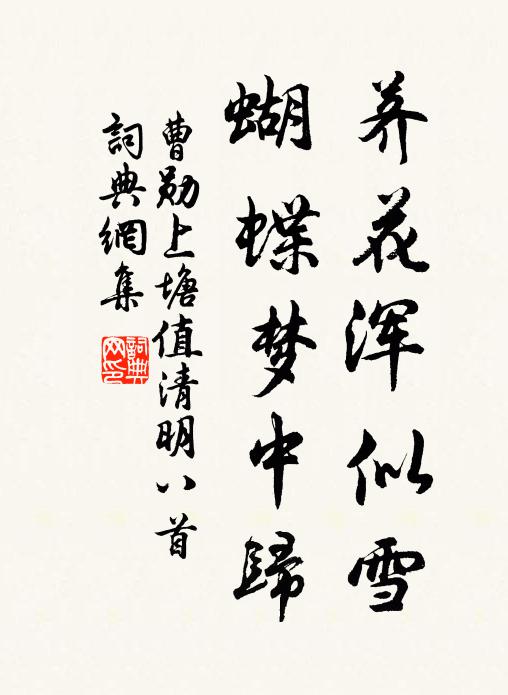 荞花浑似雪
蝴蝶梦中歸
曹勋上塘值清明八首
詞典網集
詞典網印